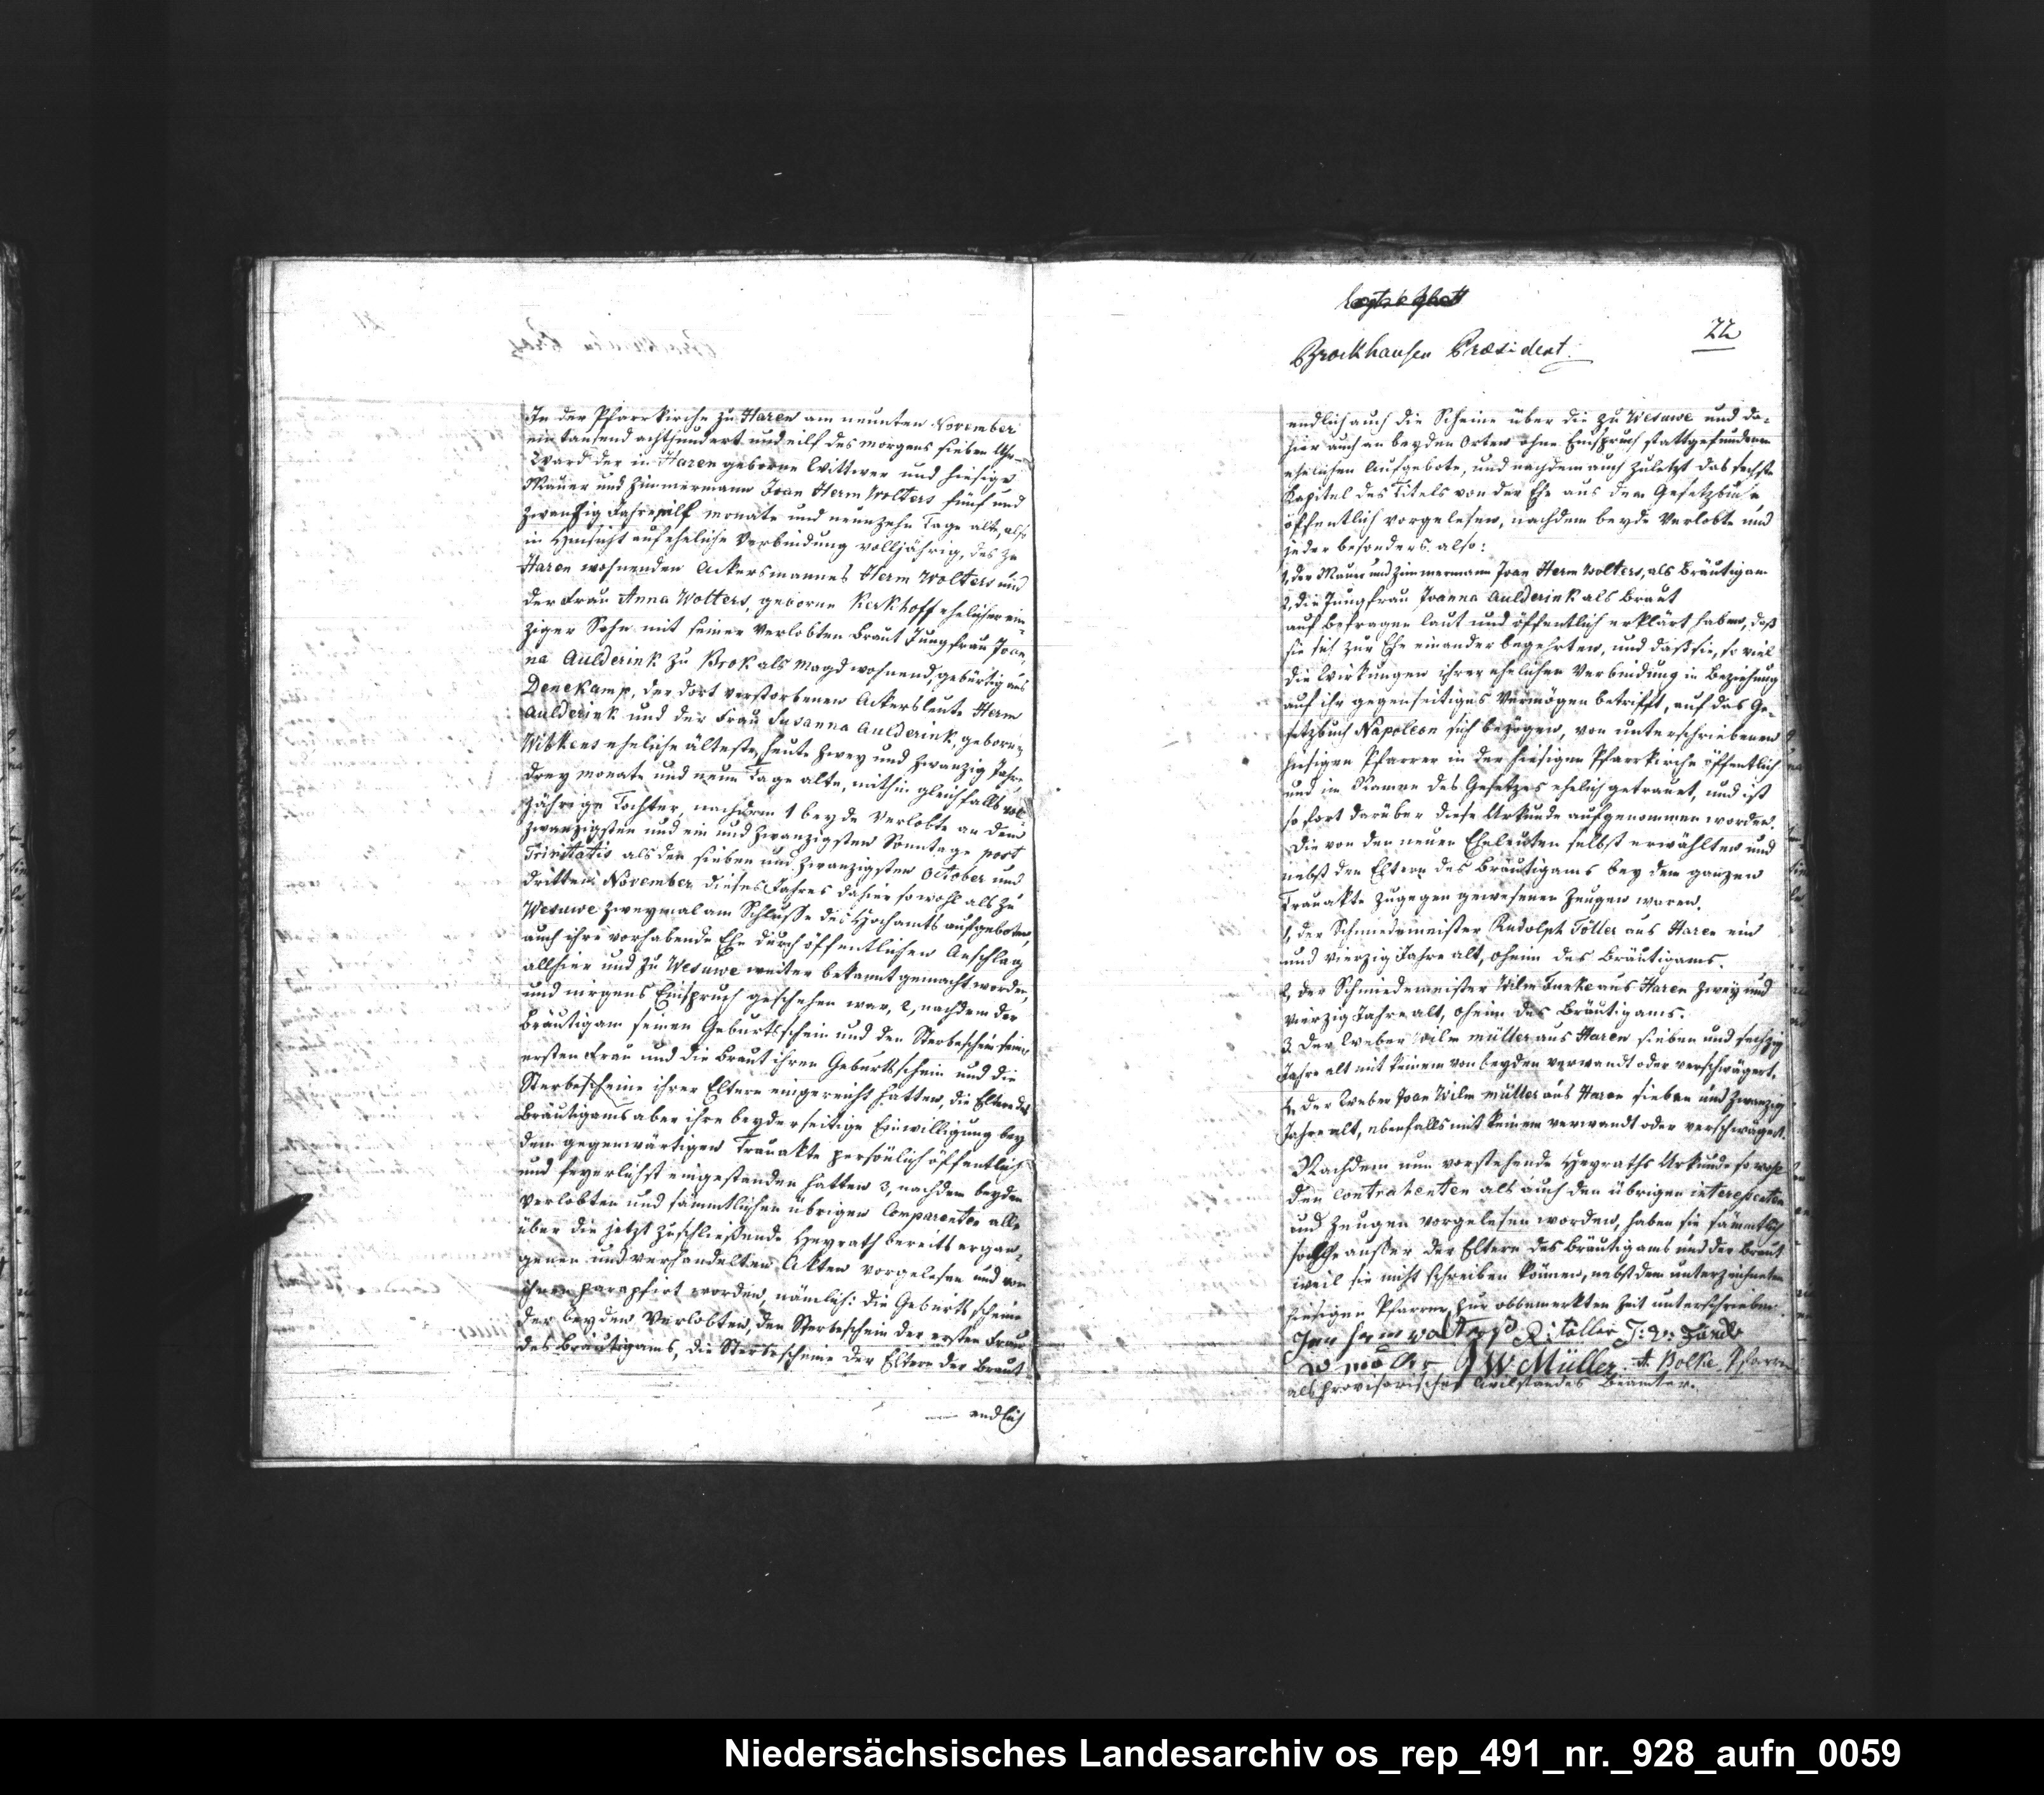 In der Pfarrkirche zu Haren am neunten November
ein tausend achthundert und eilf des morgens sieben Uhr
Ward der in Haren geborne Wittwer und hiesige
Mauer und Zimmermann Joan Herm Wolters fünf und
zwanzig Jahre eilf monate und neunzehn Tage alt, also
in Hinsicht auf eheliche Verbindung volljährig, des zu
Haren wohnenden Ackersmannes Herm Wolters und
der Frau Anna Wolters, geborne Kerkhoff ehelicher ein-
ziger Sohn mit seiner Verlobten Braut Jungfrau Joan-
na Aulderink zu Brok als Magd wohnend, gebürtig aus
Denekamp, der dort verstorbenen Ackersleute Herm
Aulderink und der Frau Susanna Aulderink, geborne
Witkens eheliche älteste, heute zwey und zwanzig Jahre
drey monate und neun Tage alte, mithin gleichfalls voll-
jährige Tochter, nachdem 1 beyde Verlobte an dem
zwanzigsten und ein und zwanzigsten Sonntage post
Trinitatis als den sieben und zwanzigsten October und
dritten November dieses Jahres dahier sowohl als zu
Wesuwe zweymal am Schlusse des Hochamts aufgeboten,
auch ihre vorhabende Ehe durch öffentlichen Anschlag
allhier und zu Wesuwe weiter bekannt gemacht worden,
und nirgens Einspruch geschehen war, 2, nachdem der
Bräutigam seinen Geburtsschein und den Sterbeschein seiner
ersten Frau und die Braut ihren Geburtsschein und die
Sterbescheine ihrer Eltern eingereicht hatten, die Eltern des
Bräutigams aber ihre beyderseitige Einwilligung bey
dem gegenwärtigen Trauakte persönlich öffentlich
und feyerlichst eingestanden hatten 3, nachdem beyden
Verlobten und sämmtlichen übrigen Comparenten alle
über die jetzt zuschließende Heyrath bereits ergan-
genen und verhandelten Akten vorgelesen und von
ihnen paraphirt worden, nämlich: die Geburtsscheine
der beyden Verlobten, den Sterbeschein der ersten Frau
des Bräutigams, die Sterbescheine der Eltern der Braut
endlich
22
Brockhausen Præsident.
endlich auch die Scheine über die zu Wesuwe und da-
hier auch an beyden Orten ohne Einspruch stattgefundenen
ehelichen Aufgebote, und nachdem auch zuletzt das sechste
Kapitel des Titels von der Ehe aus dem Gesetzbuche
öffentlich vorgelesen, nachdem beyde Verlobte und
jeder besonders also:
1, der Mauer und Zimmermann Joan Herm Wolters, als Bräutigam
2, die Jungfrau Joanna Aulderink als Braut
auf befragen laut und öffentlich erklärt haben, daß
sie sich zur Ehe einander begehrten, und daß sie, so viel
die Wirkungen ihrer ehelichen Verbindung in Beziehung
auf ihr gegenseitiges Vermögen betrifft, auf das Ge-
setzbuch Napoleon sich bezögen, von unterschriebenen
hiesigen Pfarrer in der hiesigen Pfarrkirche öffentlich
und im Namen des Gesetzes ehelich getrauet, und ist
sofort darüber diese Urkunde aufgenommen worden.
Die von den neuen Eheleuten selbst erwählten und
nebst den Eltern des Bräutigams bey dem ganzen
Trauakte zugegen gewesenen Zeugen waren.
1, der Schmiedemeister Rudolph Töller aus Haren ein
und vierzig Jahre alt, oheim des Bräutigams.
2, der Schmiedemeister Wilm Funke aus Haren zwey und
vierzig Jahre alt, oheim des Bräutigams.
3 der Weber Wilm müller aus Haren sieben und sechzig
Jahre alt mit keinem von beyden verwandt oder verschwägert.
4, der Weber Joan Wilm müller aus Haren sieben und zwanzig
Jahre alt, ebenfalls mit keinem verwandt oder verschwägert.
Nachdem nun vorstehende Heyraths Urkunde sowohl
den Contrahenten als auch den übrigen interessenten
und Zeugen vorgelesen worden, haben sie sämmtlich
solche ausser der Eltern des Bräutigams und der Braut
weil sie nicht schreiben können, nebst dem unterzeichneten
hiesigen Pfarrer zur obbemerkten Zeit unterschrieben.
Jan herm wolters R: töller
w möller JW Müller A. Bolke Pfarrer
als provisorischer Civilstandes Beamter.
Niedersächsisches Landesarchiv os_rep_491_nr._928_aufn_0059